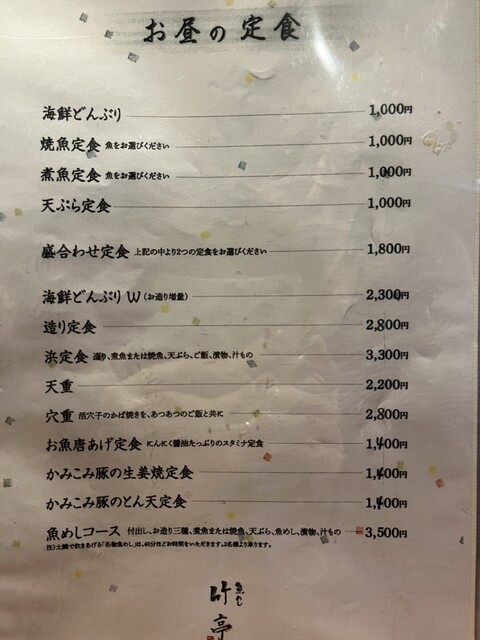 お昼の定食
海鮮どんぶり 1,000円
焼魚定食 魚をお選びください 1,000円
煮魚定食 魚をお選びください 1,000円
天ぷら定食 1,000円
盛合わせ定食 上記の中より2つの定食をお選びください 1,800円
海鮮どんぶりW（お造り増量） 2,300円
造り定食 2,800円
浜定食 造り、煮魚または焼魚、天ぷら、ご飯、漬物、汁もの 3,300円
天重 2,200円
穴重 活穴子のかば焼きを、あつあつのご飯と共に 2,800円
お魚唐あげ定食 にんにく醤油たっぷりのスタミナ定食 1,400円
かみこみ豚の生姜焼定食 1,400円
かみこみ豚のとん天定食 1,400円
魚めしコース 付出し、お造り三種、煮魚または焼魚、天ぷら、魚めし、漬物、汁もの 3,500円
注）土鍋で炊きあげる「名物魚めし」は、40分ほどお時間をいただきます。2名様より承ります。
魚匠
竹亭